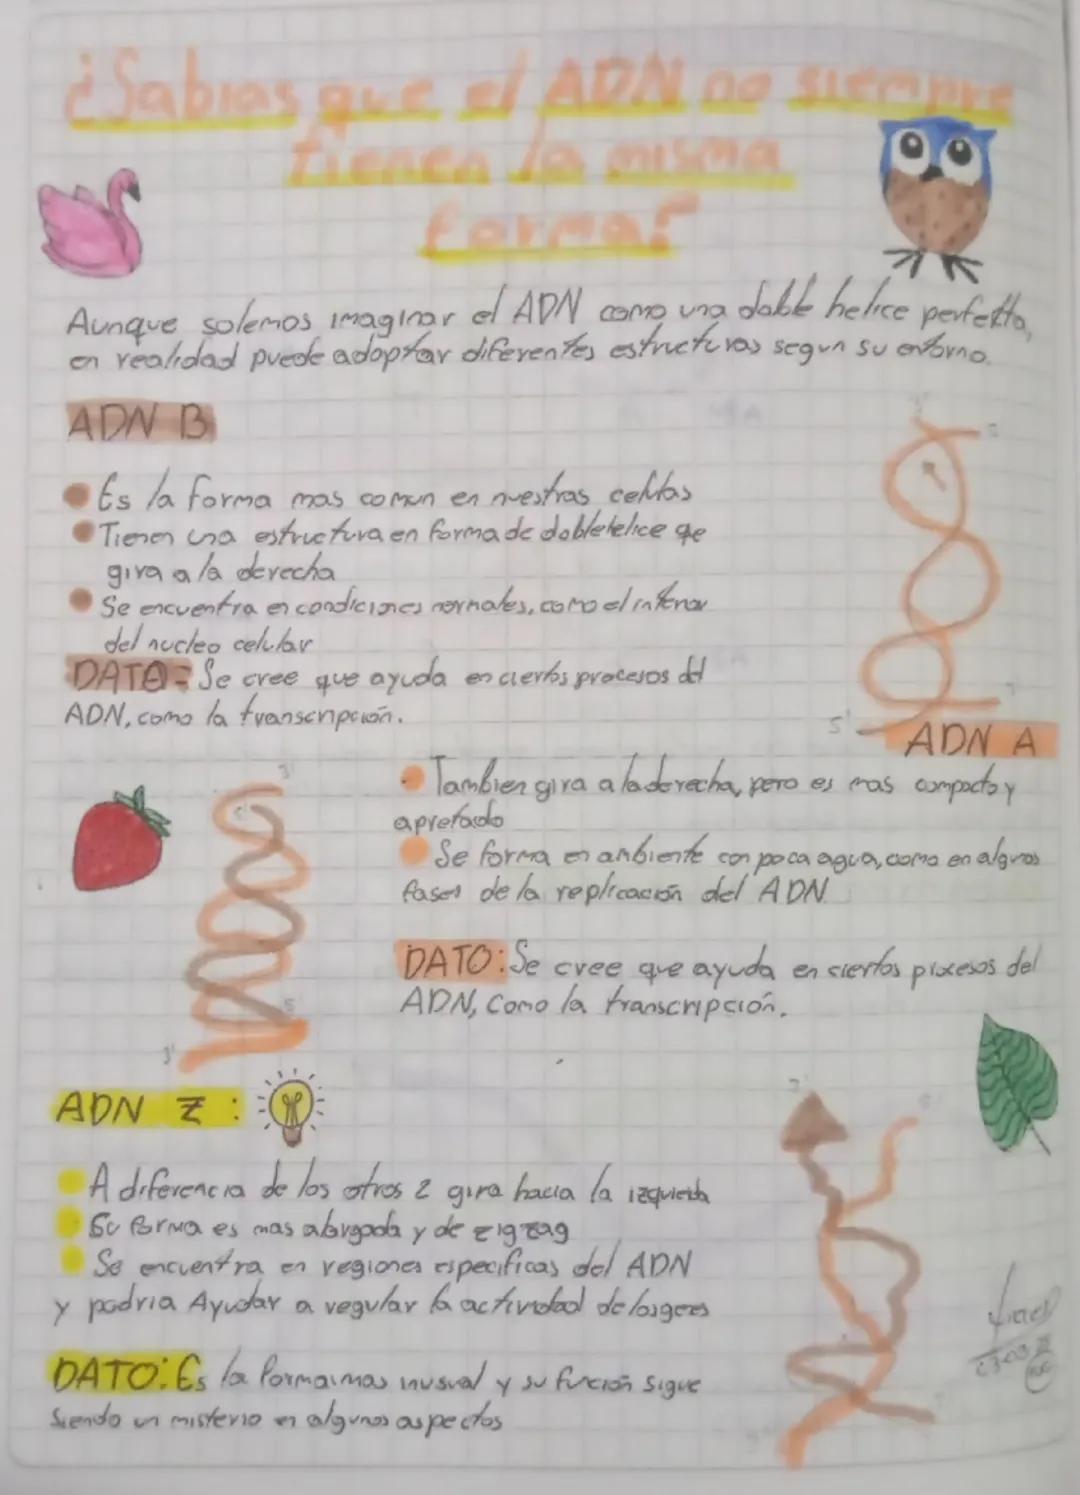 ¿Sabias que el ADN no siempre
tienen la misma
forma?
Aunque solemos imaginar el ADN como una doble helice perfetta,
en realidad puede adoptar diferentes estructuras segun su entorno.
ADN B
Es la forma mas comun en nuestras celulas
Tienen una estructura en forma de doblehelice qe
gira a la derecha
Se encuentra en condiciones normales, como el interior
del nucleo celular
DATO= Se cree que ayuda en ciertos procesos del
ADN, como la transcripción.
5'
ADN A
Tambien gira a la derecha, pero es mas compacto y
apretado
Se forma en ambiente con poca agua, como en algunos
fases de la replicación del ADN
DATO: Se cree que ayuda en ciertos procesos del
ADN, Como la transcripción.
3'
5'
3'
ADN Z:
A diferencia de los otros 2 gira hacia la izquierda
Su forma es mas alargada y de zigzag
Se encuentra en regiones especificas del ADN
y podria Ayudar a regular la actividad de los genes
DATO: Es la forma mas inusual y su función sigue
siendo un misterio en algunos aspectos